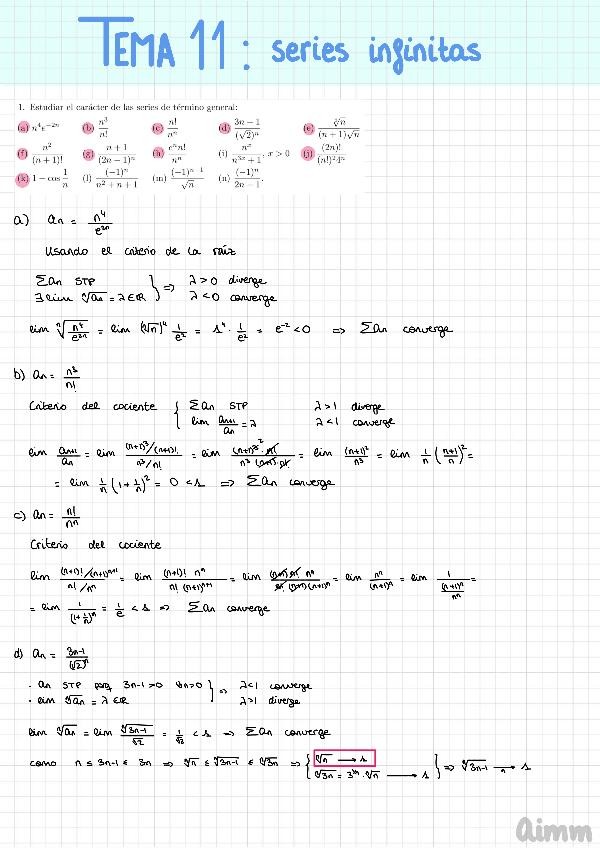 TEMA 11: series infinitas
1. Estudiar el carácter de las series de término general:
(a) n⁴e⁻²ⁿ (b) n³/n! (c) n!/nⁿ (d) (3n − 1)/(√2)ⁿ (e) ⁿ√n/((n + 1)√n)
(f) n²/(n + 1)! (g) (n + 1)/(2n − 1)ⁿ (h) eⁿn!/nⁿ (i) nˣ/(n³ˣ + 1), x > 0 (j) (2n)!/((n!)²4ⁿ)
(k) 1 − cos 1/n (l) (−1)ⁿ/(n² + n + 1) (m) (−1)ⁿ⁻¹/√n (n) (−1)ⁿ/(2n − 1).
a) an = n⁴/e²ⁿ
Usando el criterio de la raíz
Σan STP
∃ lim ⁿ√an = λ ∈ ℝ } ⇒ λ > 0 diverge
λ < 0 converge
lim ⁿ√(n⁴/e²ⁿ) = lim (ⁿ√n)⁴ 1/e² = 1⁴ · 1/e² = e⁻² < 0 ⇒ Σan converge
b) an = n³/n!
Criterio del cociente { Σan STP λ > 1 diverge
lim an+1/an = λ λ < 1 converge
lim an+1/an = lim ((n+1)³/(n+1)!)/(n³/n!) = lim (n+1)³ · n!/(n³ (n+1) · n!) = lim (n+1)²/n³ = lim 1/n ((n+1)/n)² =
= lim 1/n (1 + 1/n)² = 0 < 1 ⇒ Σan converge
c) an = n!/nⁿ
Criterio del cociente
lim ((n+1)!/(n+1)ⁿ⁺¹)/(n!/nⁿ) = lim (n+1)! nⁿ/(n! (n+1)ⁿ⁺¹) = lim (n+1) n! nⁿ/(n! (n+1)(n+1)ⁿ) = lim nⁿ/(n+1)ⁿ = lim 1/((n+1)ⁿ/nⁿ) =
= lim 1/(1 + 1/n)ⁿ = 1/e < 1 ⇒ Σan converge
d) an = (3n-1)/(√2)ⁿ
· an STP porq 3n-1 > 0 ∀n > 0
· lim ⁿ√an = λ ∈ ℝ } ⇒ λ < 1 converge
λ > 1 diverge
lim ⁿ√an = lim ⁿ√(3n-1)/√2 = 1/√2 < 1 ⇒ Σan converge
como n ≤ 3n-1 ≤ 3n ⇒ ⁿ√n ≤ ⁿ√(3n-1) ≤ ⁿ√3n ⇒ { ⁿ√n → 1
ⁿ√3n = 3^(1/n) · ⁿ√n → 1 } ⇒ ⁿ√(3n-1) →n 1
aimm